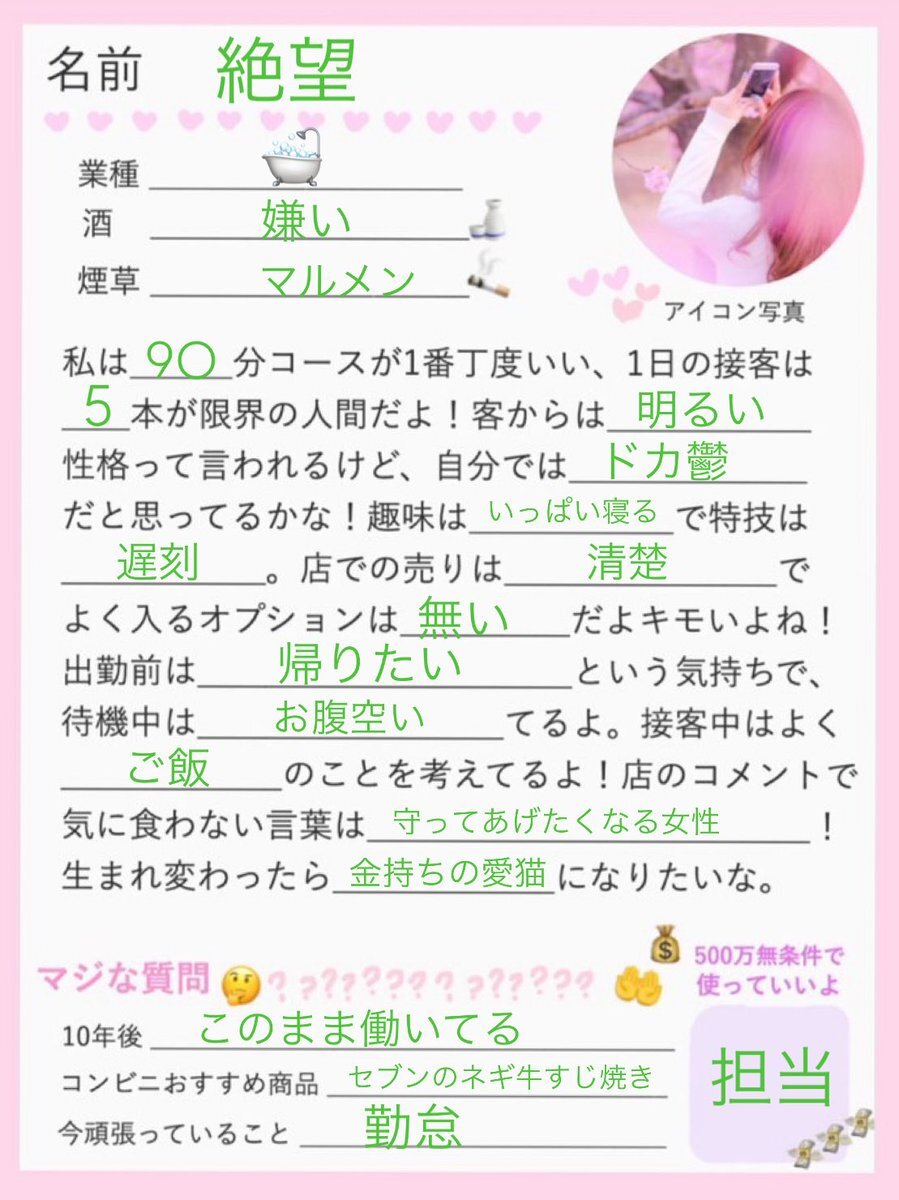 名前 絶望
業種
酒 嫌い
煙草 マルメン
アイコン写真
私は90分コースが1番丁度いい、1日の接客は
5本が限界の人間だよ！客からは明るい
性格って言われるけど、自分ではドカ鬱
だと思ってるかな！趣味はいっぱい寝るで特技は
遅刻。店での売りは清楚で
よく入るオプションは無いだよキモいよね！
出勤前は帰りたいという気持ちで、
待機中はお腹空いてるよ。接客中はよく
ご飯のことを考えてるよ！店のコメントで
気に食わない言葉は守ってあげたくなる女性！
生まれ変わったら金持ちの愛猫になりたいな。
マジな質問🤔?????????????
500万無条件で
使っていいよ
10年後 このまま働いてる
コンビニおすすめ商品 セブンのネギ牛すじ焼き
今頑張っていること 勤怠
担当